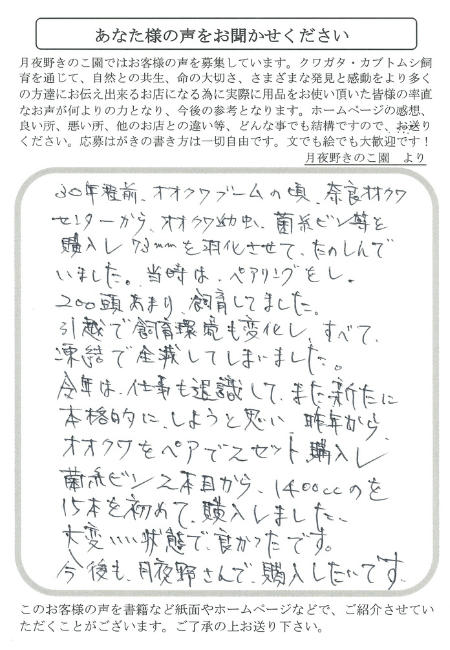 あなた様の声をお聞かせください
月夜野きのこ園ではお客様の声を募集しています。クワガタ・カブトムシ飼
育を通じて、自然との共生、命の大切さ、さまざまな発見と感動をより多く
の方達にお伝え出来るお店になる為に実際に用品をお使い頂いた皆様の率直
なお声が何よりの力となり、今後の参考となります。ホームページの感想、
良い所、悪い所、他のお店との違い等、どんな事でも結構ですので、お送り
ください。応募はがきの書き方は一切自由です。文でも絵でも大歓迎です！
月夜野きのこ園　より
30年程前、オオクワブームの頃、奈良オオクワ
センターから、オオクワ幼虫、菌糸ビン等を
購入し73mmを羽化させて、たのしんで
いました。当時は、ペアリングをし、
200頭あまり、飼育してました。
引越で飼育環境も変化し、すべて、
凍結で全滅してしまいました。
今年は、仕事も退識して、また新たに
本格的に、しようと思い、昨年から
オオクワをペアで2セット購入し
菌糸ビン2本目から、1400ccのを
15本を初めて、購入しました、
大変いい状態で、良かったです。
今後も、月夜野さんで、購入したいです。
このお客様の声を書籍など紙面やホームページなどで、ご紹介させてい
ただくことがございます。ご了承の上お送り下さい。